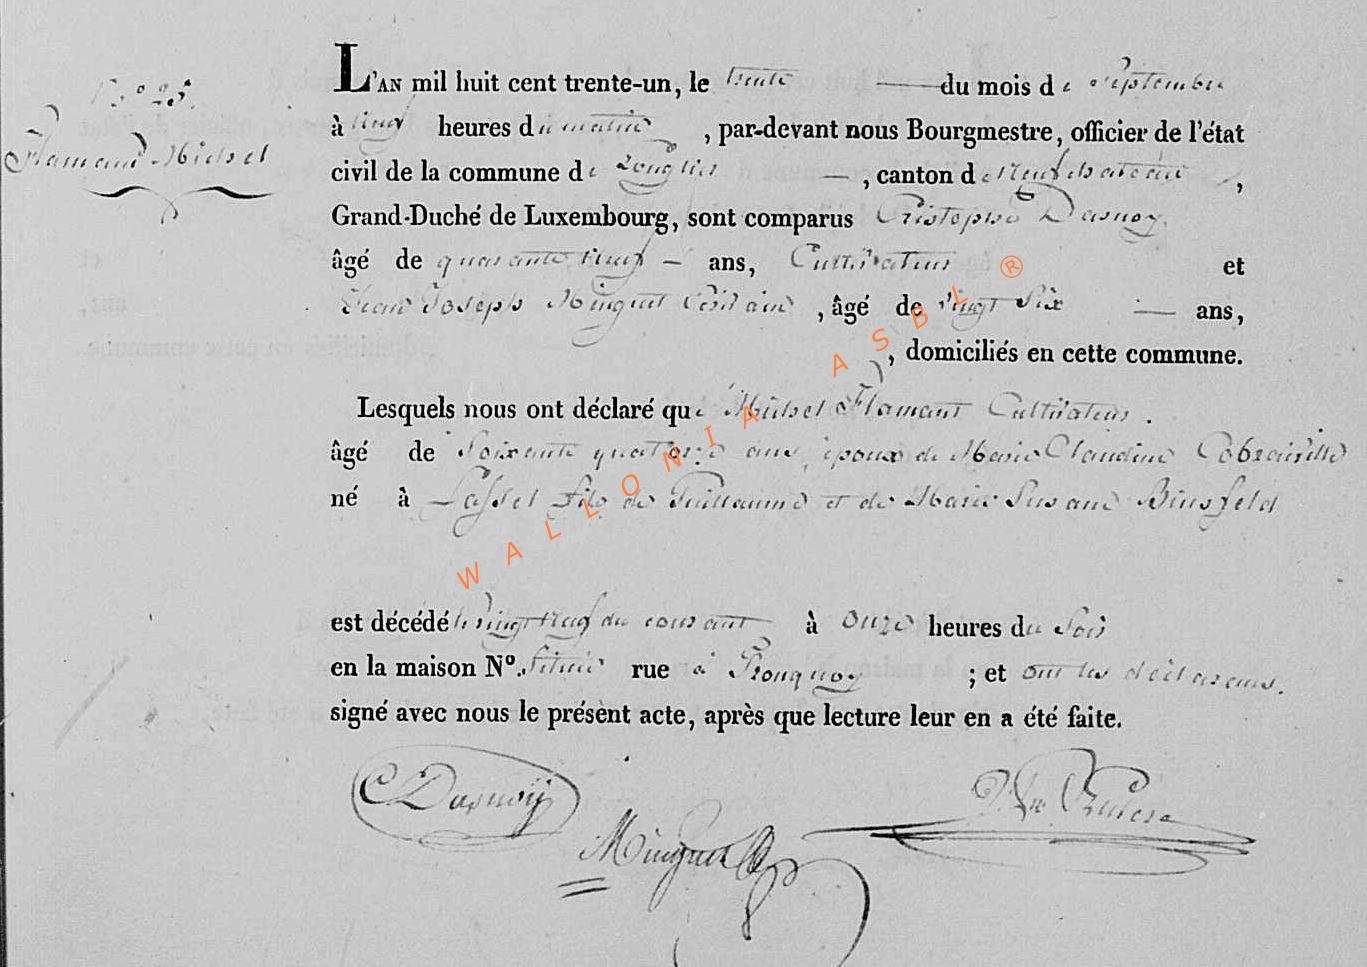 N.° 25.
Flamand Michel
L'AN mil huit cent trente-un, le trente du mois de Septembre
à cinq heures du matin, par-devant nous Bourgmestre, officier de l'état
civil de la commune de Longlier, canton de Neufchateau,
Grand-Duché de Luxembourg, sont comparus Cristophe Dasnoy
âgé de quarante neuf ans, Cultivateur et
Jean Joseph Minguet, âgé de vingt Six ans,
, domiciliés en cette commune.
Lesquels nous ont déclaré que Michel Flamant Cultivateur.
âgé de Soixante quatorze ans, époux de Marie Claudine
né à Lassel fils de Guillaume et de Marie Susane Binsfeld
est décédé le vingt neuf du courant à onze heures du Soir
en la maison N°. située rue à Ronquoy ; et ont les déclarans.
signé avec nous le présent acte, après que lecture leur en a été faite.
C Dasnoÿ
Minguet
WALLONIA ASBL ®